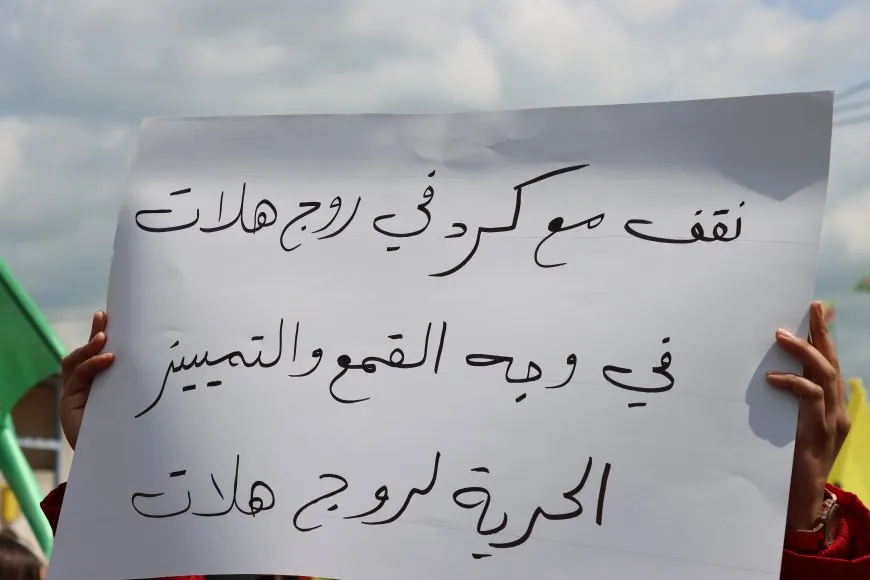 نقف مع كرد في روج هلات
في وجه القمع والتمييز
الحرية لروج هلات